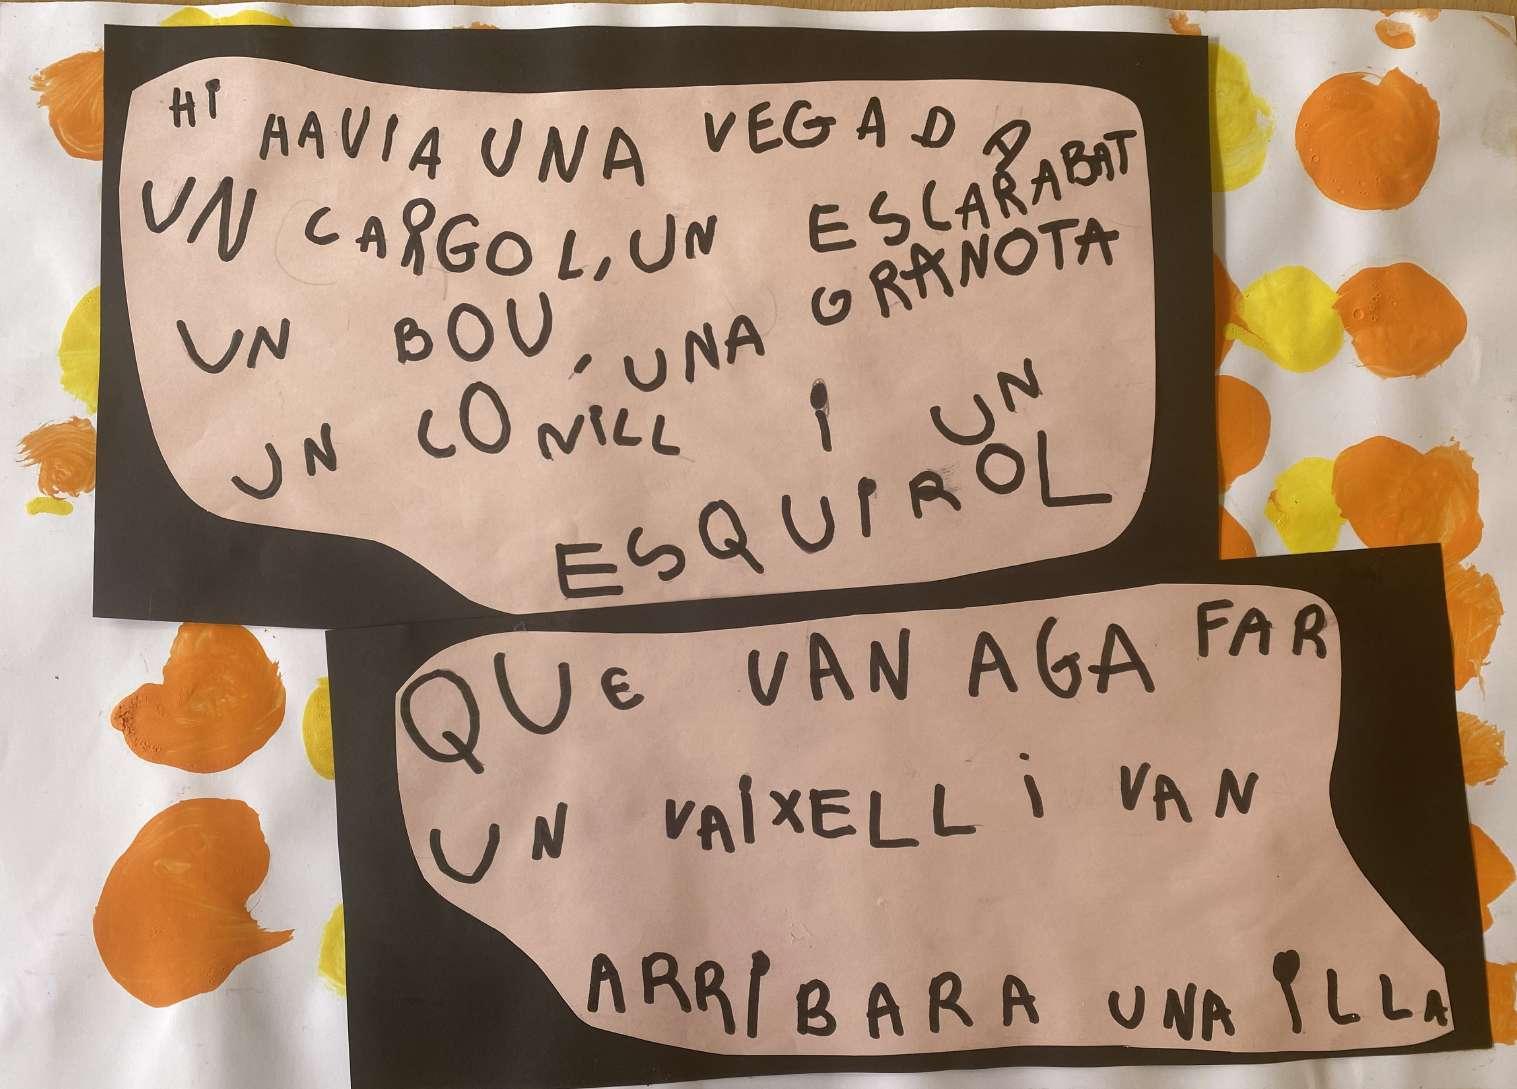 HI HAVIA UNA VEGADA
UN CARGOL, UN ESCARABAT
UN BOU, UNA GRANOTA
UN CONILL I UN
ESQUIROL
QUE VAN AGAFAR
UN VAIXELL I VAN
ARRIBARA UNA ILLA